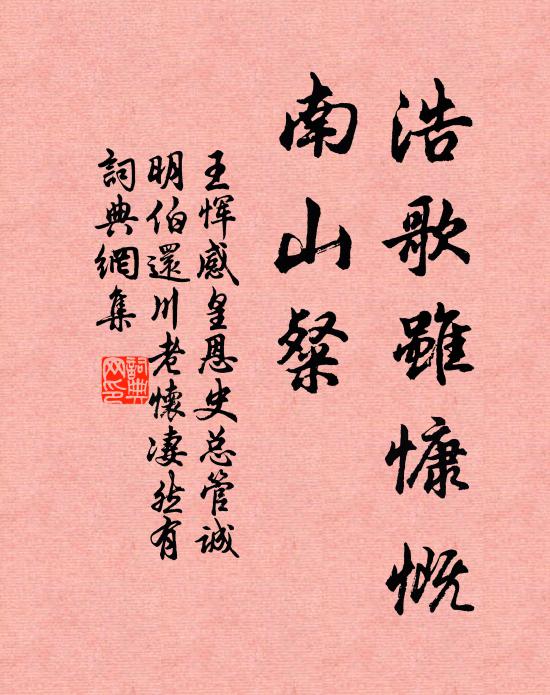 浩歌雖慷慨
南山粲
王惲感皇恩史总管誠
明伯還川老懷凄然有
詞典網集
詞典
网印